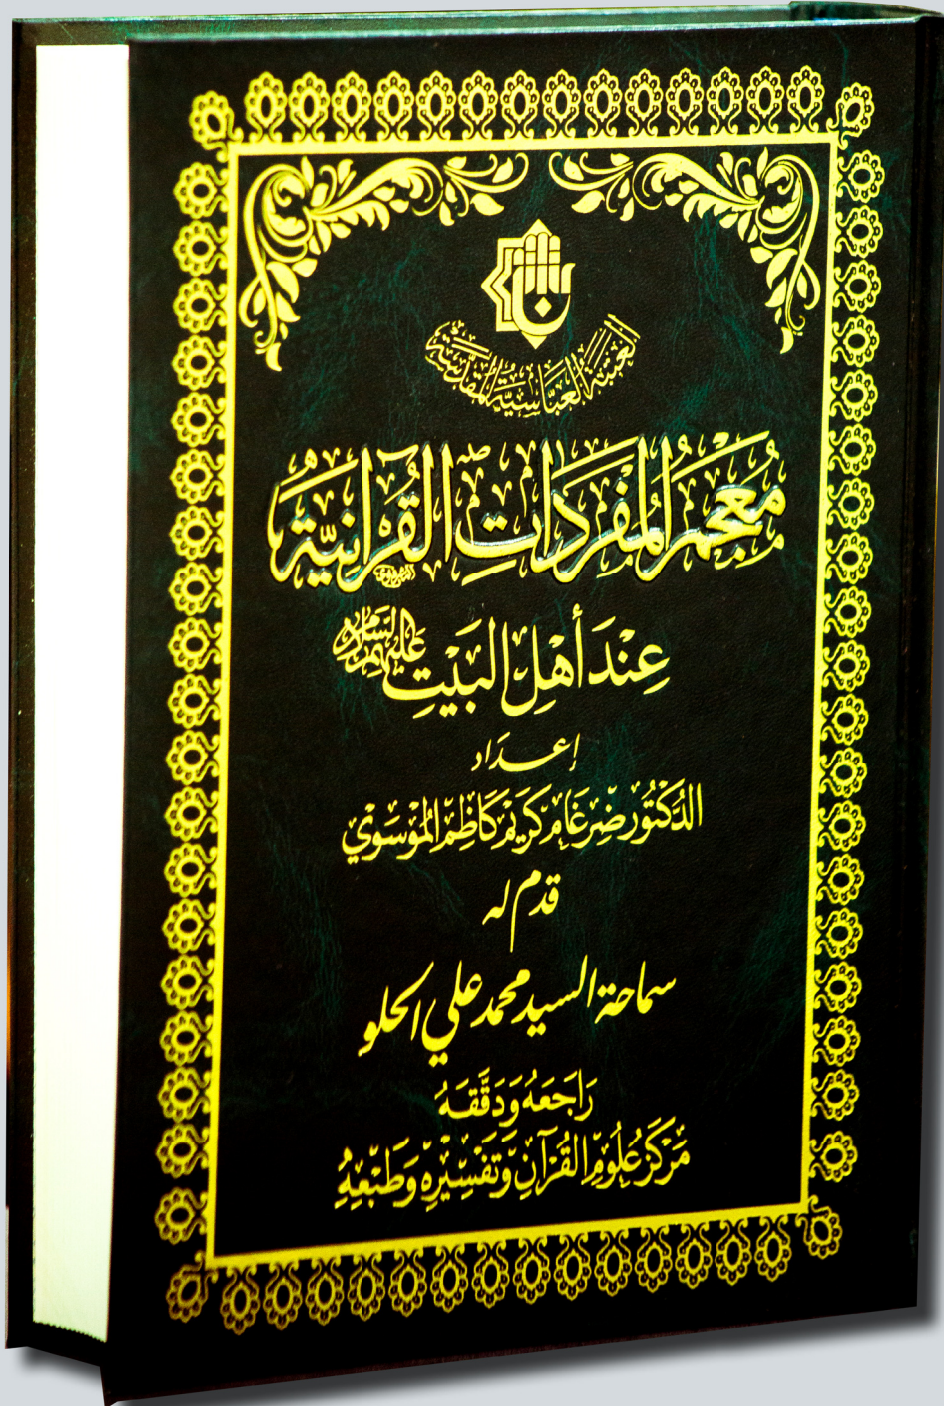 العتبة العباسية المقدسة
معجم المفردات القرآنية
عند أهل البيت عليهم السلام
إعداد
الدكتور ضرغام كريم كاظم الموسوي
قدم له
سماحة السيد محمد علي الحلو
راجعه ودققه
مركز علوم القرآن وتفسيره وطبعه